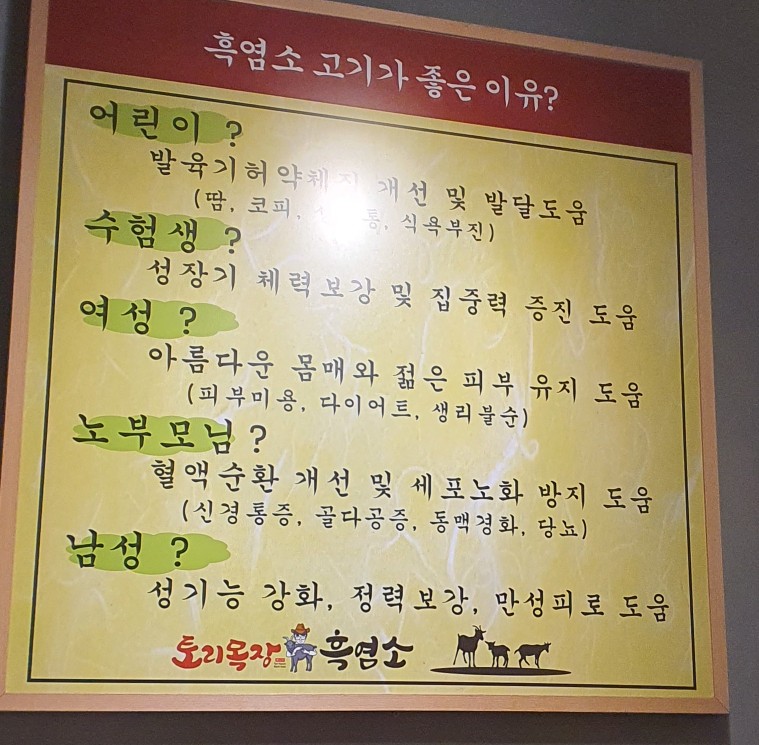 흑염소 고기가 좋은 이유?
어린이 ?
발육기허약체질 개선 및 발달도움
(땀, 코피, 식욕부진)
수험생 ?
성장기 체력보강 및 집중력 증진 도움
여성 ?
아름다운 몸매와 젊은 피부 유지 도움
(피부미용, 다이어트, 생리불순)
노부모님 ?
혈액순환 개선 및 세포노화 방지 도움
(신경통증, 골다공증, 동맥경화, 당뇨)
남성 ?
성기능 강화, 정력보강, 만성피로 도움
토리목장 흑염소